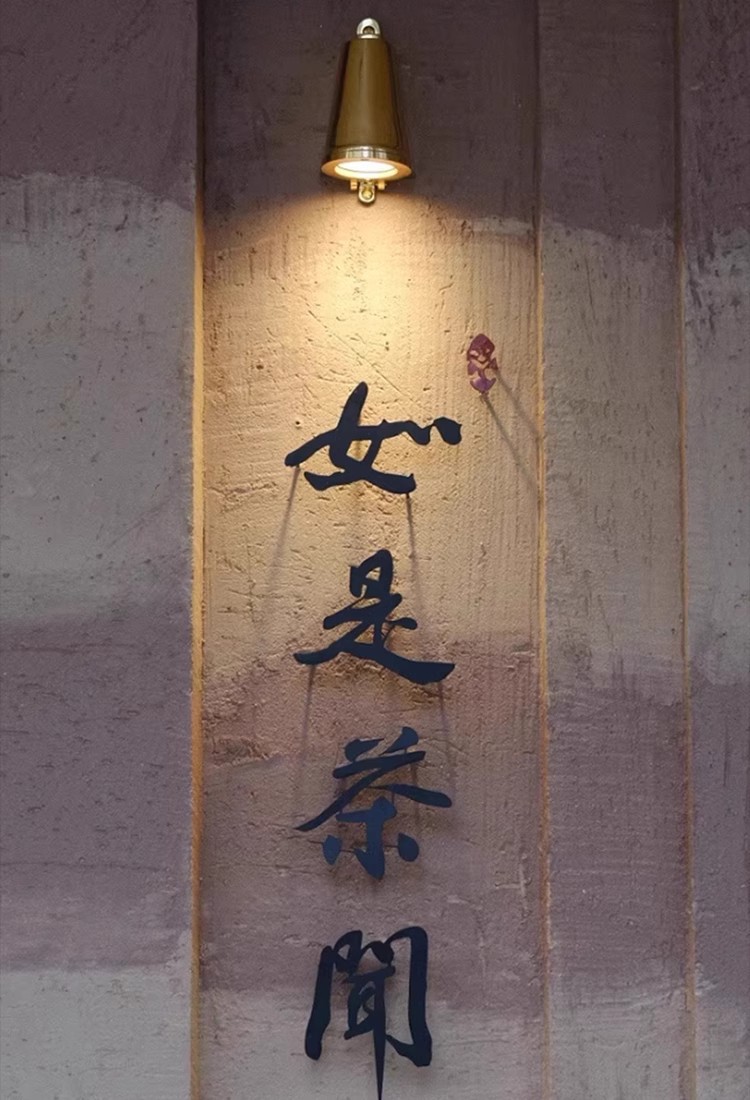 如是茶聞